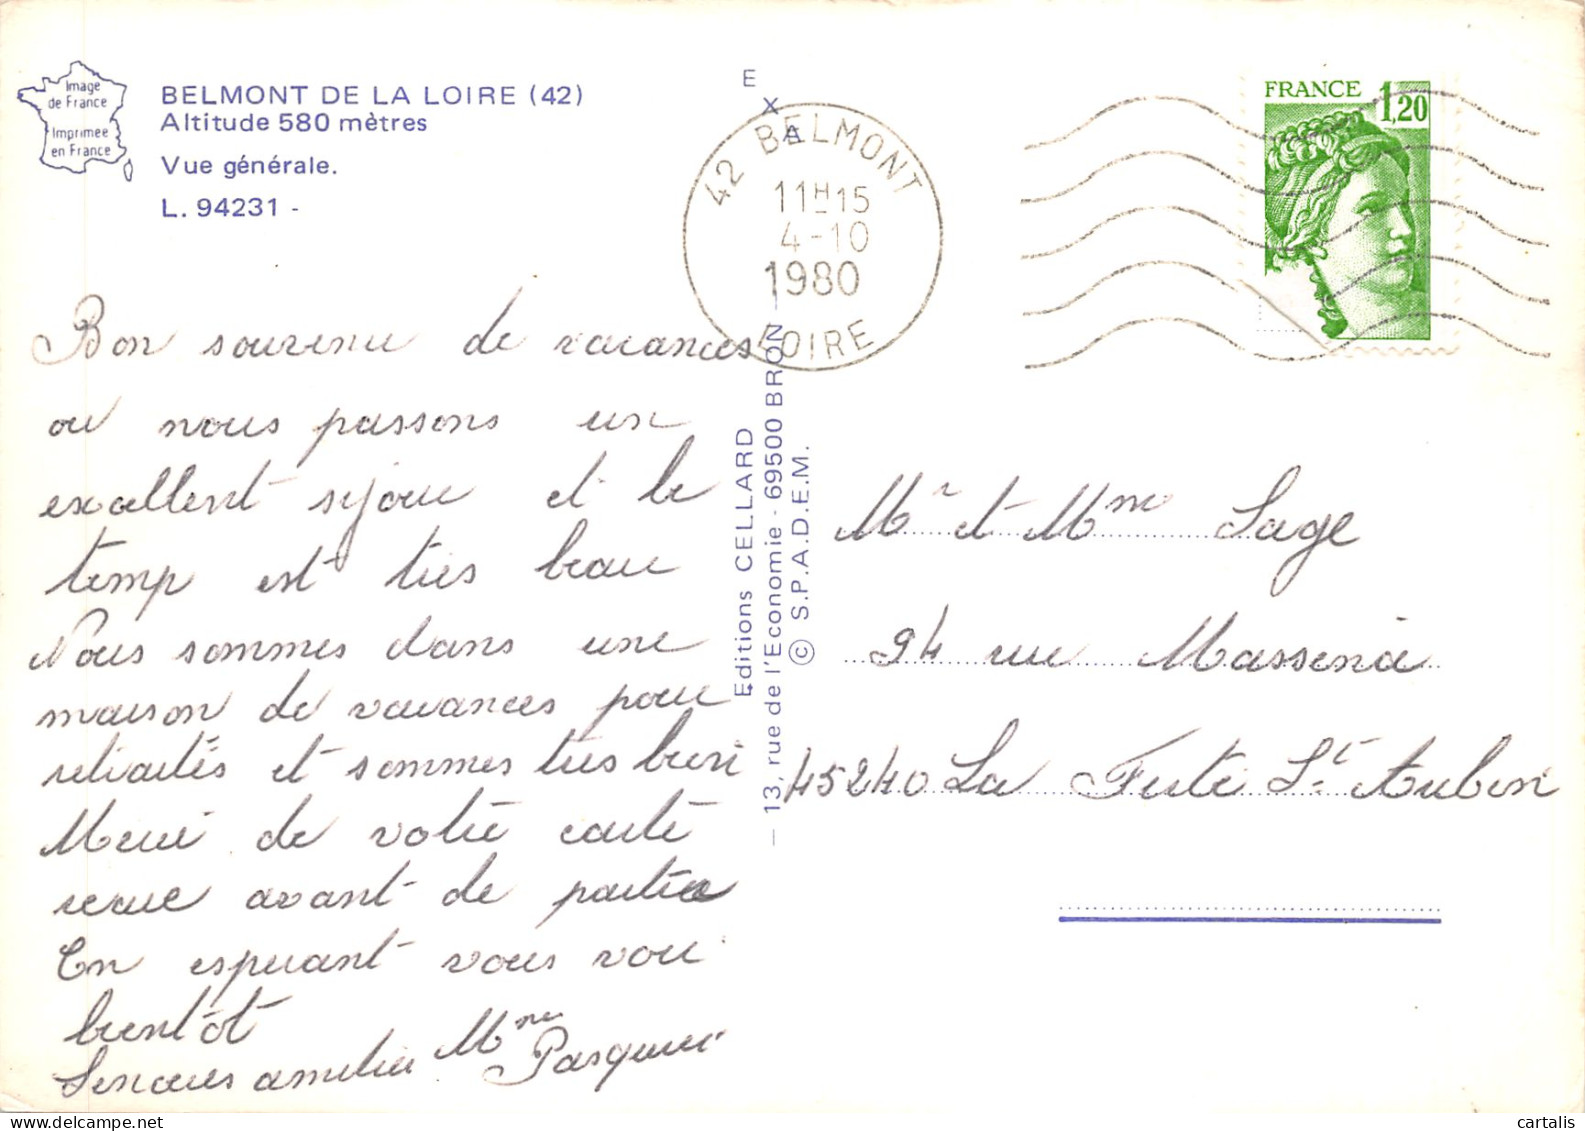 Image
de France
Imprimée
en France
BELMONT DE LA LOIRE (42)
Altitude 580 mètres
Vue générale.
L. 94231 -
E
X
A
42 BELMONT
11H15
4-10
1980
LOIRE
FRANCE 1,20
Bon souvenir de vacances
ou nous passons un
excellent séjour et le
temp est très beau
Nous sommes dans une
maison de vacances pour
retraités et sommes très bien
Merci de votre carte
recue avant de partir
En esperant vous voir
bientôt
Sincères amitiés Mme
Editions CELLARD
— 13, rue de l'Economie - 69500 BRON —
© S.P.A.D.E.M.
Mr et Mme Sage
94 rue Massena
45240 La Ferté St Aubin
cartalis